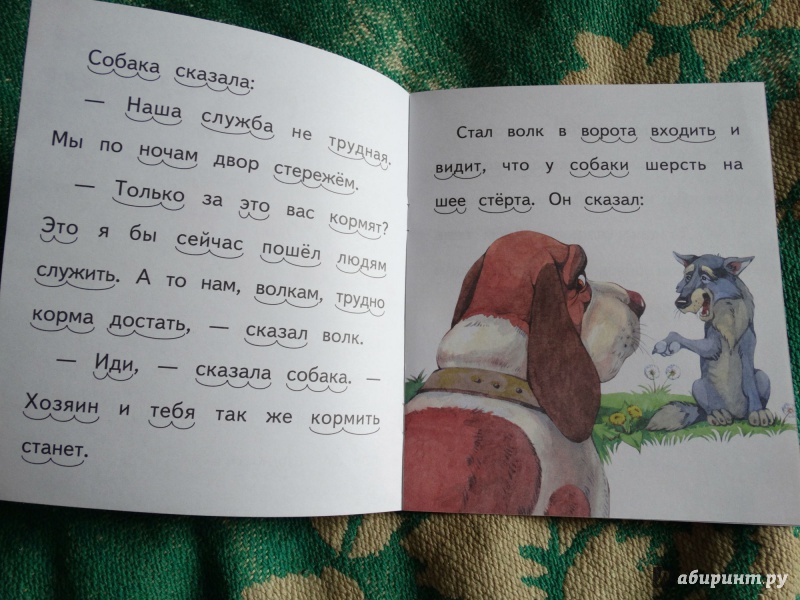 Собака сказала:
— Наша служба не трудная.
Мы по ночам двор стережём.
— Только за это вас кормят?
Это я бы сейчас пошёл людям
служить. А то нам, волкам, трудно
корма достать, — сказал волк.
— Иди, — сказала собака. —
Хозяин и тебя так же кормить
станет.
Стал волк в ворота входить и
видит, что у собаки шерсть на
шее стёрта. Он сказал:
абиринт.ру